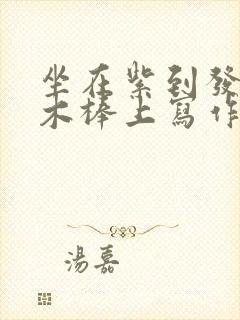 坐在紫到發
木棒上寫作
湯嘉